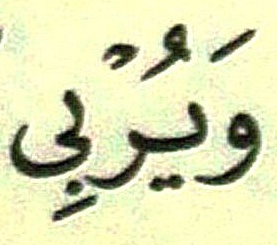 وَيُرْبِي